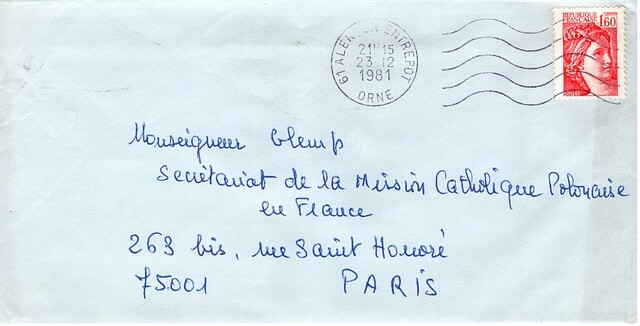 61 ALENÇON ENTREPOT
21H15
23-12
1981
ORNE
REPUBLIQUE
FRANCAISE
1,60
Monseigneur Glemp
Secrétariat de la Mission Catholique Polonaise
en France
263 bis, rue Saint Honoré
75001 PARIS